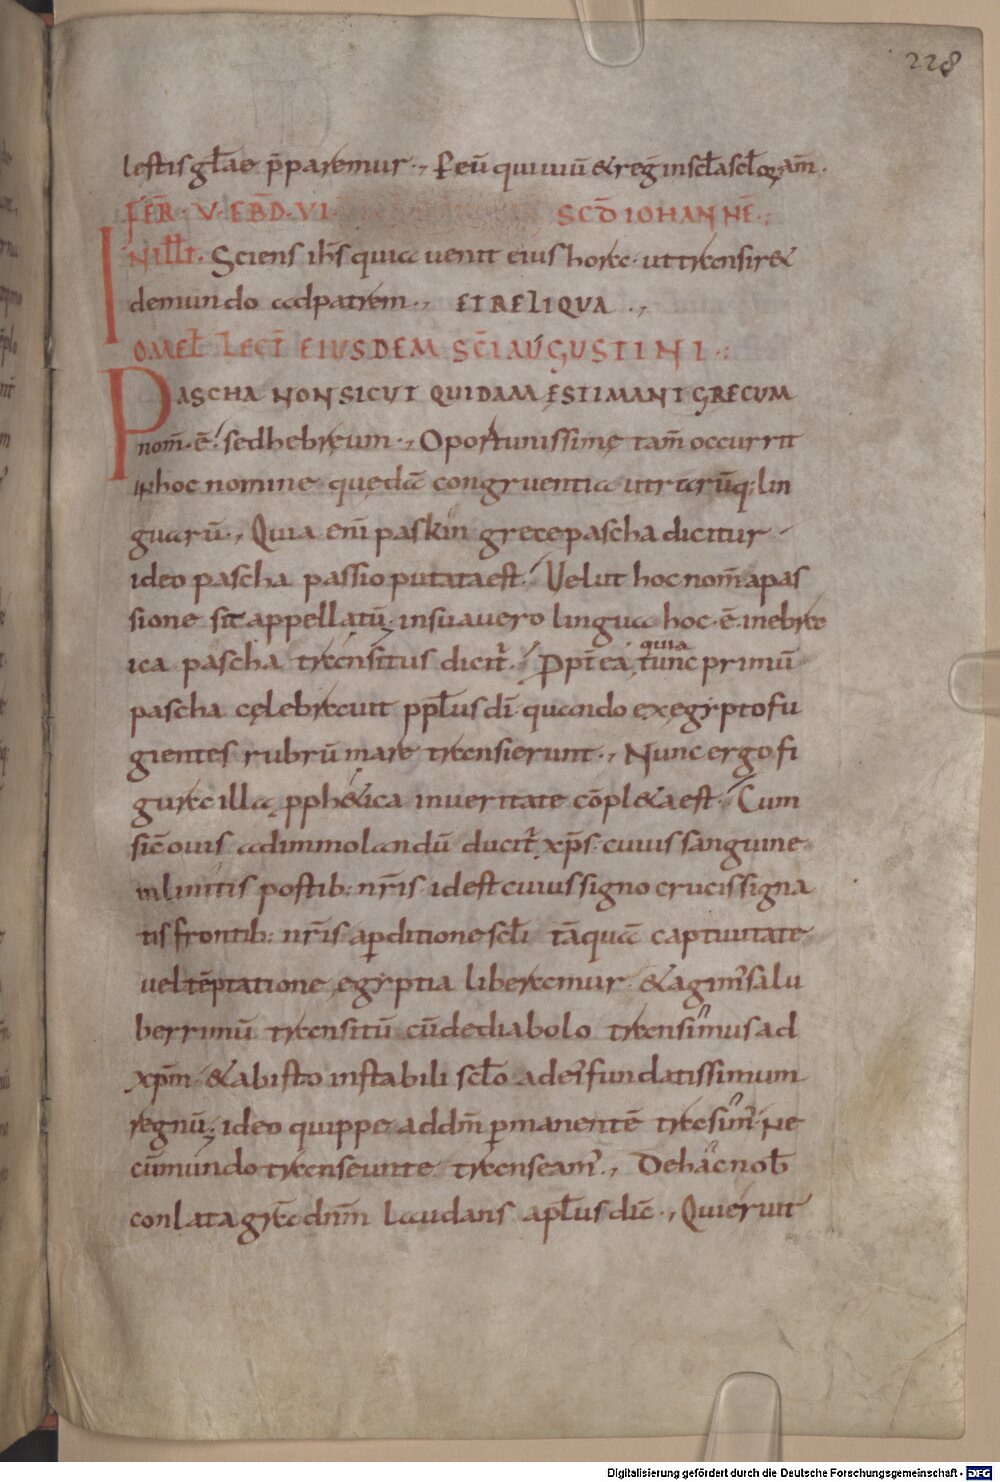 228
lestis gl̅ae p̅paremur ·, P̲ eu̅ qui uiu̅ & reg̅ in scl̅a scl̅oꝝ am̅ ·
FER̅ · V · EBD̅ · VI · SCD̅ IOHANNE̅ ·,
IN ill̅t · Sciens ih̅s quia uenit eius hora · ut transir&
de mundo ad patrem ·, ET RELIQUA ·,
OMEL̅ LECT̅ EIUSDEM SCI̅ AUGUSTINI ·
PASCHA NON SICUT QUIDAM ESTIMANT GRECUM
nom̅ · e̅ · sed hebreum ·, Oportunissime tam̅ occurrit
in hoc nomine quęda̅ congruentia utraru̅q; lin
guaru̅ ·, Quia eni̅ paskin grece pascha dicitur
ideo pascha passio putata est · Uelut hoc nom̅ a pas
sione sit appellatu̅; in sua uero lingua hoc · e̅ · in hebra
ica pascha transitus dicit̉ · P̲pt̅ ea̅ quia tunc primu̅
pascha cęlebrauit ppl̅us di̅ quando ex egypto fu
gientes rubru̅ mare transierunt ·, Nunc ergo fi
gura illa pph&ica in ueritate co̅pl&a est · Cum
sic̅ ouis ad immolandu̅ ducit̉ xp̅s · cuius sanguine
inlinitis postib: nr̅is · id est cuius signo crucis signa
tis frontib: nr̅is a p̲ditione scl̅i ta̅qua̅ captiuitate
uel te̅ptatione egyptia liberamur · & agim̉ salu
berrimu̅ transitu̅ cu̅ de diabolo transimus ad
xp̅m · & ab isto instabili scl̅o ad eỉ fundatissimum
regnu̅; ideo quippe ad dm̅ p̲manente̅ trasim̉ · Ne
cu̅ mundo transeunte transeam̉ ·, De hac nob̅
conlata gra̅ dn̅m laudans apl̅us dic̅ ·, Qui eruit
Digitalisierung gefördert durch die Deutsche Forschungsgemeinschaft - DFG